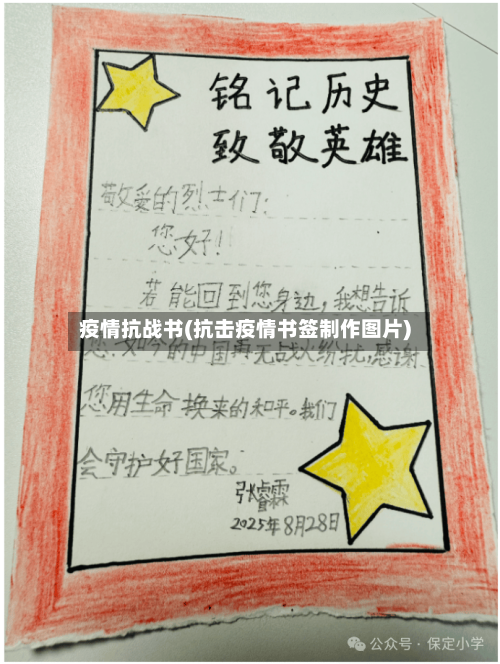 铭记历史
致敬英雄
敬爱的烈士们:
您好!
若能回到您身边,我想告诉
疫情抗战书(抗击疫情书签制作图片)
您,如今的中国再无战火纷扰,感谢
您用生命换来的和平。我们
会守护好国家。
张睿霖
2025年8月28日
公众号·保定小学